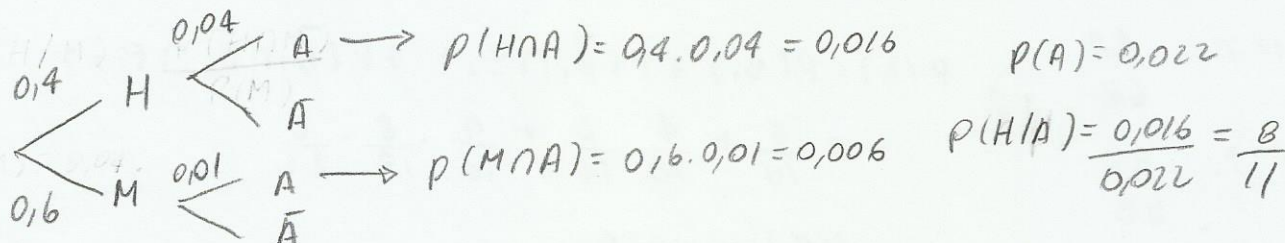 0,04 A → p(H∩A) = 0,4 . 0,04 = 0,016 p(A) = 0,022
0,4 H
Ā
0,01 A → p(M∩A) = 0,6 . 0,01 = 0,006 p(H/A) = 0,016 / 0,022 = 8 / 11
0,6 M
Ā